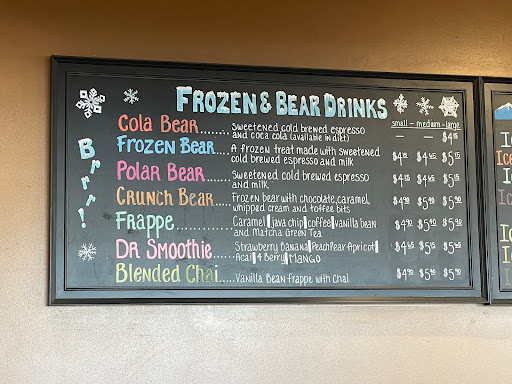 FROZEN & BEAR DRINKS
small - medium - large
Brrr!
Cola Bear........ Sweetened cold brewed espresso
and coca cola (available in diet) — —
Frozen Bear.... A frozen treat made with sweetened
cold brewed espresso and milk $4.45 $5.15
Polar Bear....... Sweetened cold brewed espresso
and milk $4.45 $5.15
Crunch Bear.... Frozen bear with chocolate, caramel,
whipped cream and toffee bits $4.90 $5.40 $5.90
Frappe............ Caramel|java chip|coffee|vanilla bean
and Matcha Green Tea $4.90 $5.40 $5.90
DR Smoothie..... Strawberry Banana|Peach Pear Apricot|
Acai|4 Berry|MANGO $4.45 $5.45
Blended Chai..... Vanilla Bean frappe with Chai $4.90 $5.40 $5.90
Ice